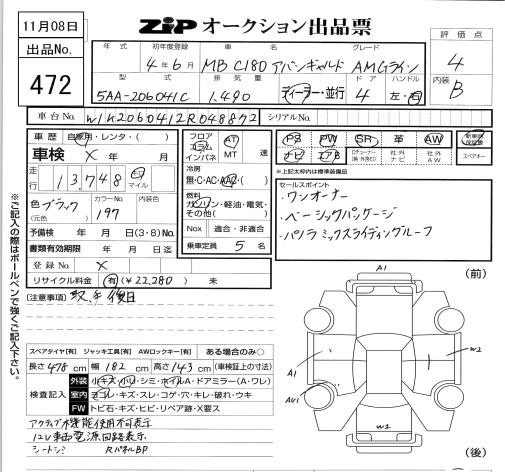 11月08日
出品No.
472
ZIP オークション出品票
評価点
4
内装
B
年式 初年度登録 車名 グレード
4年6月 MB C180 アバンギャルド AMGライン
型式 排気量 ドア ハンドル
5AA-206041C 1.490 ディーラー・並行 4 左・右
車台No. W1K2060412R048872 シリアルNo.
車歴 自家用・レンタ・( )
車検 X 年 月
走行 13,748 km マイル
色 ブラック カラーNo. 197 内装色
(元色)
予備検 年 月 日(3・8)No.
書類有効期限 年 月 日迄
登録No. X
リサイクル料金 (有)(¥22,280) 未
フロア コラム インパネ AT MT 速
冷房 無・C・AC・AAC・( )
燃料 ガソリン・軽油・電気・その他( )
Nox 適合・非適合
乗車定員 5 名
PS PW SR 革 AW 新車時保証書
ナビ エアB 社外ナビ 社外AW スペアキー
※上記太枠内は標準装備品
セールスポイント
・ワンオーナー
・ベーシックパッケージ
・パノラミックスライディングルーフ
※ご記入の際はボールペンで強くご記入下さい。
[注意事項]
スペアタイヤ[有] ジャッキ工具[有] AWロックキー[有] ある場合のみ○
長さ 478 cm 幅 182 cm 高さ 143 cm (車検証上の寸法)
検査記入
外装 小キズ・小凹・シミ・ホイルA・ドアミラー(A・ワレ)
室内 ヨゴレ・キズ・スレ・コゲ・穴・キレ・破れ・ウキ
FW トビ石・キズ・ヒビ・リペア跡・X要ス
アクティブ機能使用不可表示
12V車両電源回路表示
シートシミ RパネルBP
(前)
A1
W2
A1
AW1
W2
(後)